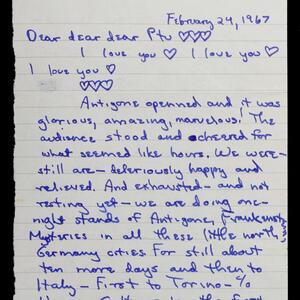 February 24, 1967
Dear dear dear Ptu ♡♡♡
I love you ♡ I love you ♡
I love you ♡
♡♡♡
Antigone openned and it was
glorious, amazing, marvelous! The
audience stood and cheered for
what seemed like hours. We were—
still are—deleriously happy and
relieved. And exhausted—and not
resting yet—we are doing one-
night stands of Antigone, Frankenst
Mysteries in all these little north
Germany cities for still about
ten more days and then to
Italy— First to Torino— c/o